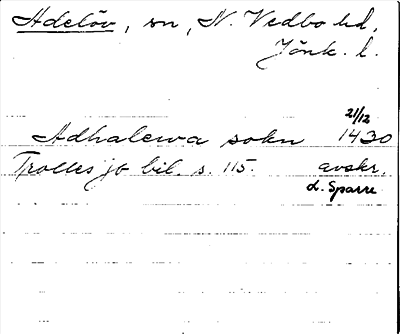 Adelöv, sn, N. Vedbo hd,
Jönk. l.
21/12
Adhalewa sokn 1430
Trolles jb bil. s. 115. avskr.
d. Sparre